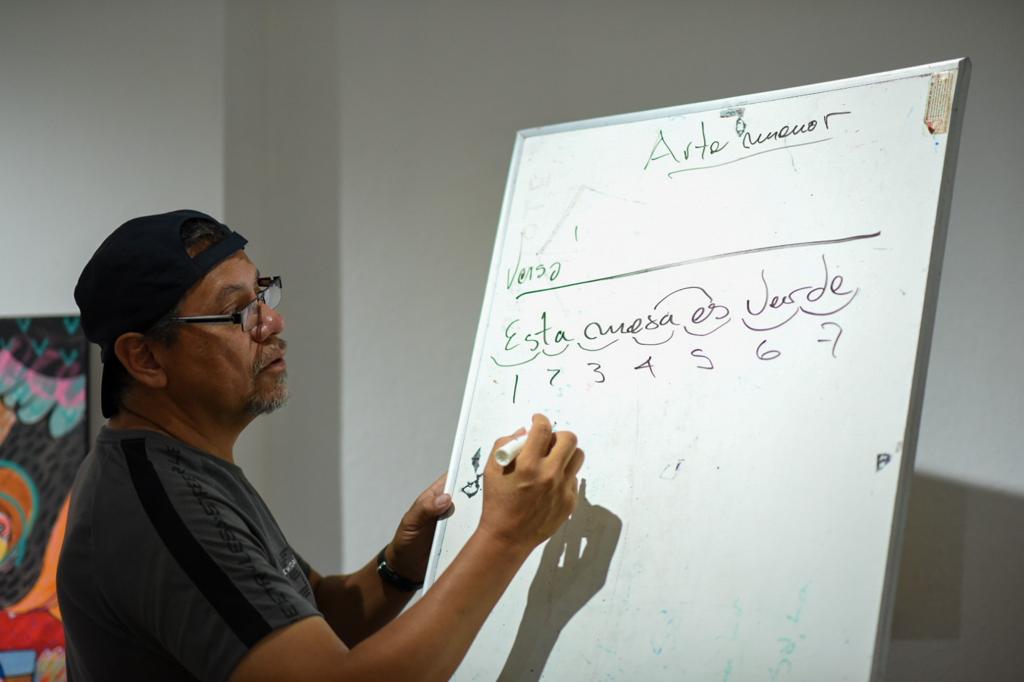 Arte menor
Verso
Esta mesa es Verde
1 2 3 4 5 6 7